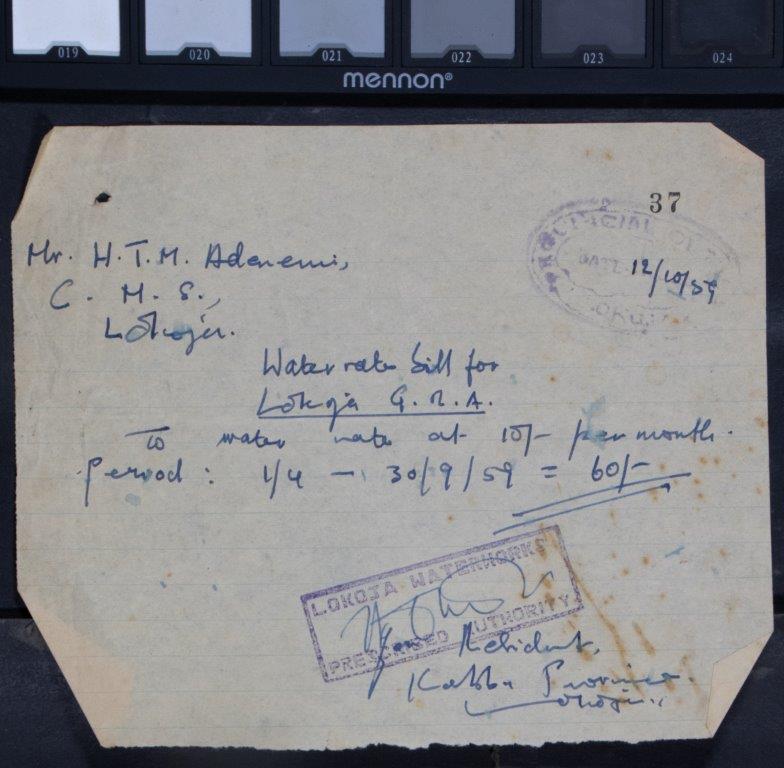 019 020 021 022 023 024
mennon®
37
PROVINCIAL
DATE 12/10/59
LOKOJA
Mr. H.T.M. Adenemi,
C. M. S.,
Lokoja.
Water rate bill for
Lokoja G.R.A.
To water rate at 10/- per month.
Period: 1/4 — 30/9/59 = 60/-
LOKOJA WATERWORKS
PRESCRIBED AUTHORITY
Resident,
Kabba Province.
Lokoja.